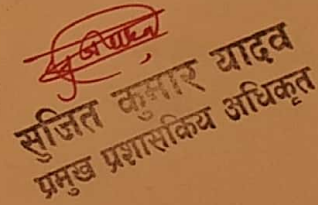 सुजित कुमार यादव
प्रमुख प्रशासकिय अधिकृत